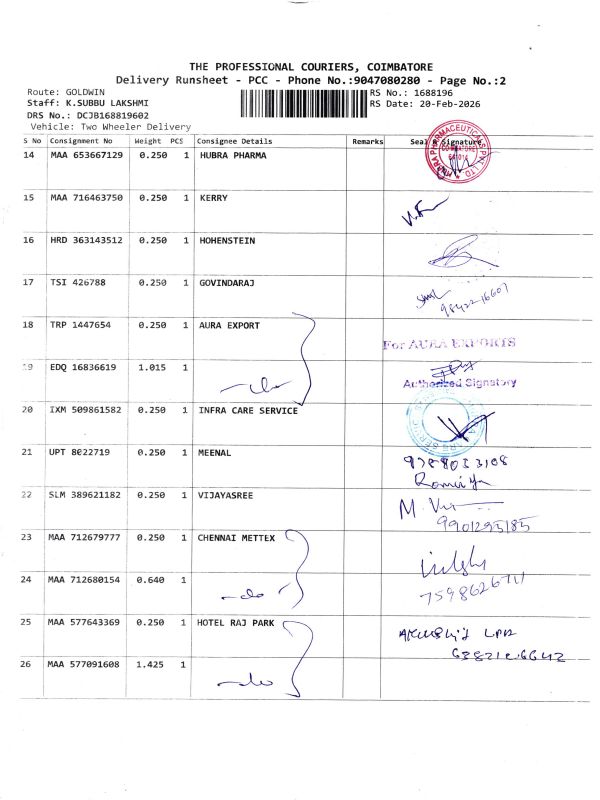 THE PROFESSIONAL COURIERS, COIMBATORE
Delivery Runsheet - PCC - Phone No.:9047080280 - Page No.:2
Route: GOLDWIN
Staff: K.SUBBU LAKSHMI
DRS No.: DCJB168819602
Vehicle: Two Wheeler Delivery
RS No.: 1688196
RS Date: 20-Feb-2026
S No Consignment No Weight PCS Consignee Details Remarks Seal & Signature
14 MAA 653667129 0.250 1 HUBRA PHARMA
COIMBATORE
641014
15 MAA 716463750 0.250 1 KERRY
16 HRD 363143512 0.250 1 HOHENSTEIN
17 TSI 426788 0.250 1 GOVINDARAJ
9842216607
18 TRP 1447654 0.250 1 AURA EXPORT
For AURA EXPORTS
19 EDQ 16836619 1.015 1
-do-
Authorized Signatory
20 IXM 509861582 0.250 1 INFRA CARE SERVICE
21 UPT 8022719 0.250 1 MEENAL
9788033108
22 SLM 389621182 0.250 1 VIJAYASREE
9901295185
23 MAA 712679777 0.250 1 CHENNAI METTEX
24 MAA 712680154 0.640 1
-do-
25 MAA 577643369 0.250 1 HOTEL RAJ PARK
26 MAA 577091608 1.425 1
-do-